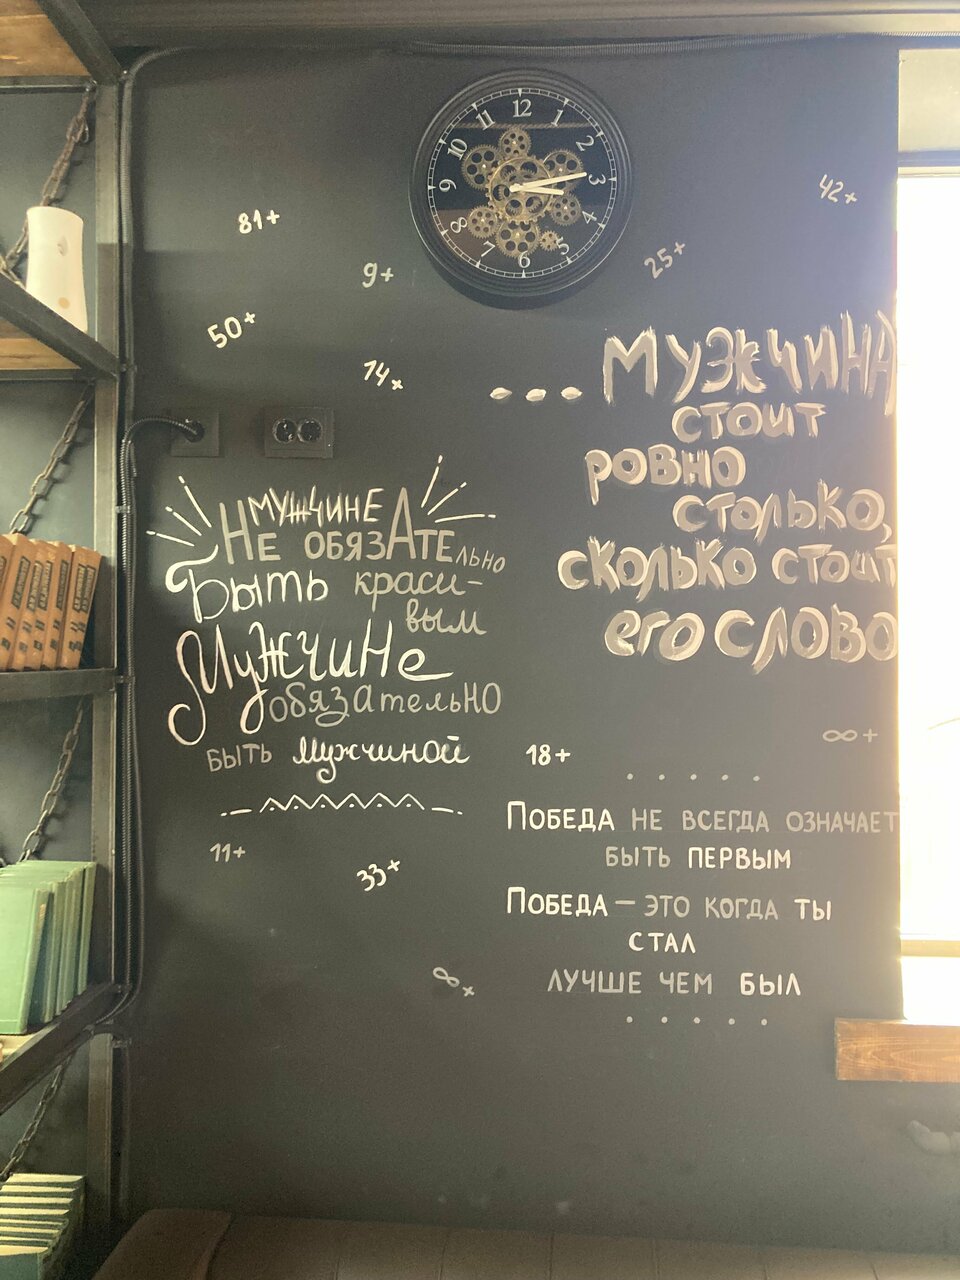 12
1
2
3
4
5
6
7
8
9
10
11
81+
42+
9+
25+
50+
14+
... МУЖЧИНА
СТОИТ
РОВНО
СТОЛЬКО,
СКОЛЬКО СТОИТ
ЕГО СЛОВО
МУЖЧИНЕ
НЕ ОБЯЗАТЕЛЬНО
Быть краси-
вым
Мужчине
обязательно
БЫТЬ мужчиной
∞+
18+
ПОБЕДА НЕ ВСЕГДА ОЗНАЧАЕТ
БЫТЬ ПЕРВЫМ
ПОБЕДА — ЭТО КОГДА ТЫ
СТАЛ
ЛУЧШЕ ЧЕМ БЫЛ
11+
33+
∞+